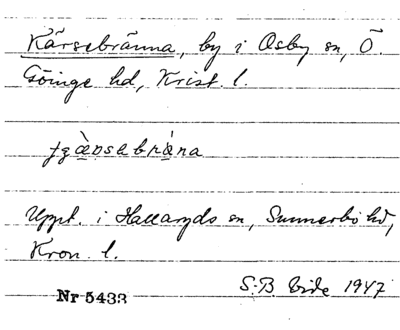 Kärsebränna, by i Osby sn, Ö.
Göinge hd, Krist. l.
Uppt. i Hallaryds sn, Sunnerbo hd,
Kron. l.
S.B. Vide 1947
Nr 5433